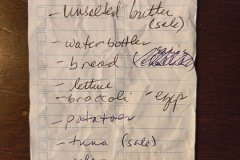 - Unsalted butter
(sale)
- water bottles
- bread
- lettuce
- broccoli - eggs
- potatoes
- tuna (sale)